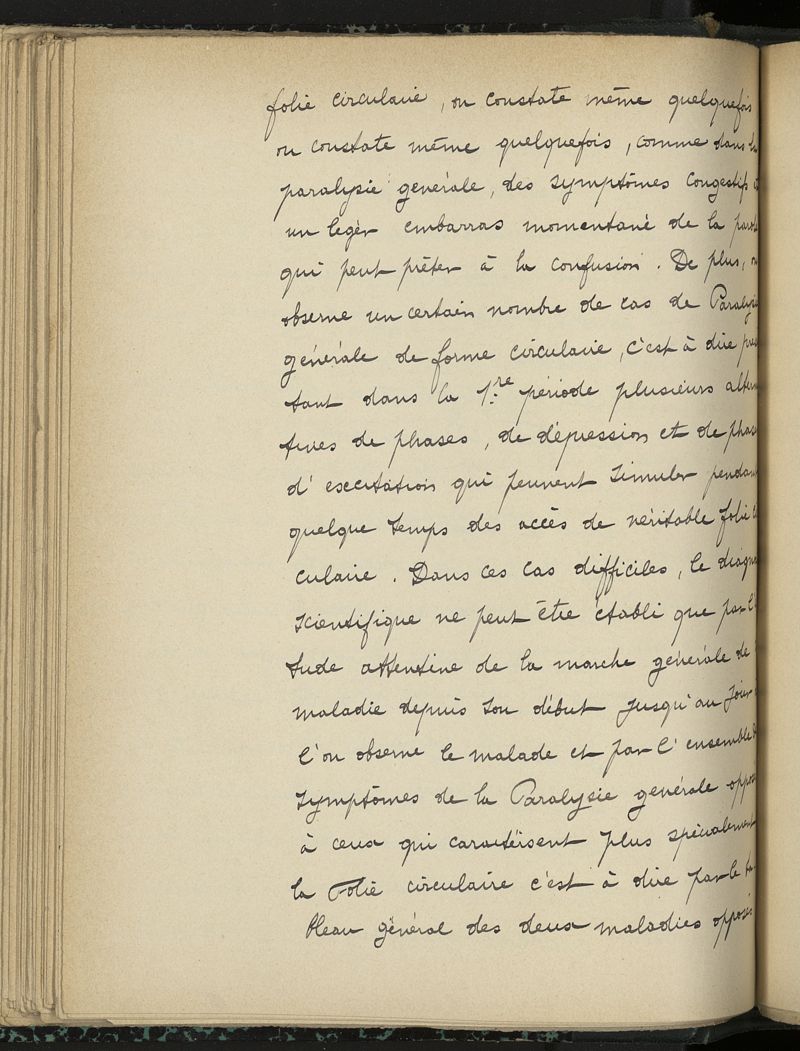 folie circulaire, on constate même quelquefois
on constate même quelquefois, comme dans la
paralysie générale, des symptômes congestifs
un léger embarras momentané de la parole
qui peut prêter à la confusion. De plus, on
observe un certain nombre de cas de Paralysie
générale de forme circulaire, c'est à dire pré
tant dans la 1re période plusieurs altern
tives de phases, de dépression et de phas
d'excitation qui peuvent simuler pendant
quelque temps des accès de véritable folie
culaire. Dans ces cas difficiles, le diagn
scientifique ne peut être établi que par l'
tude attentive de la marche générale de
maladie depuis son début jusqu'au jour
l'on observe le malade et par l'ensemble
symptômes de la Paralysie générale oppos
à ceux qui caractérisent plus spécialement
la Folie circulaire c'est à dire par le ta
bleau général des deux maladies opposés